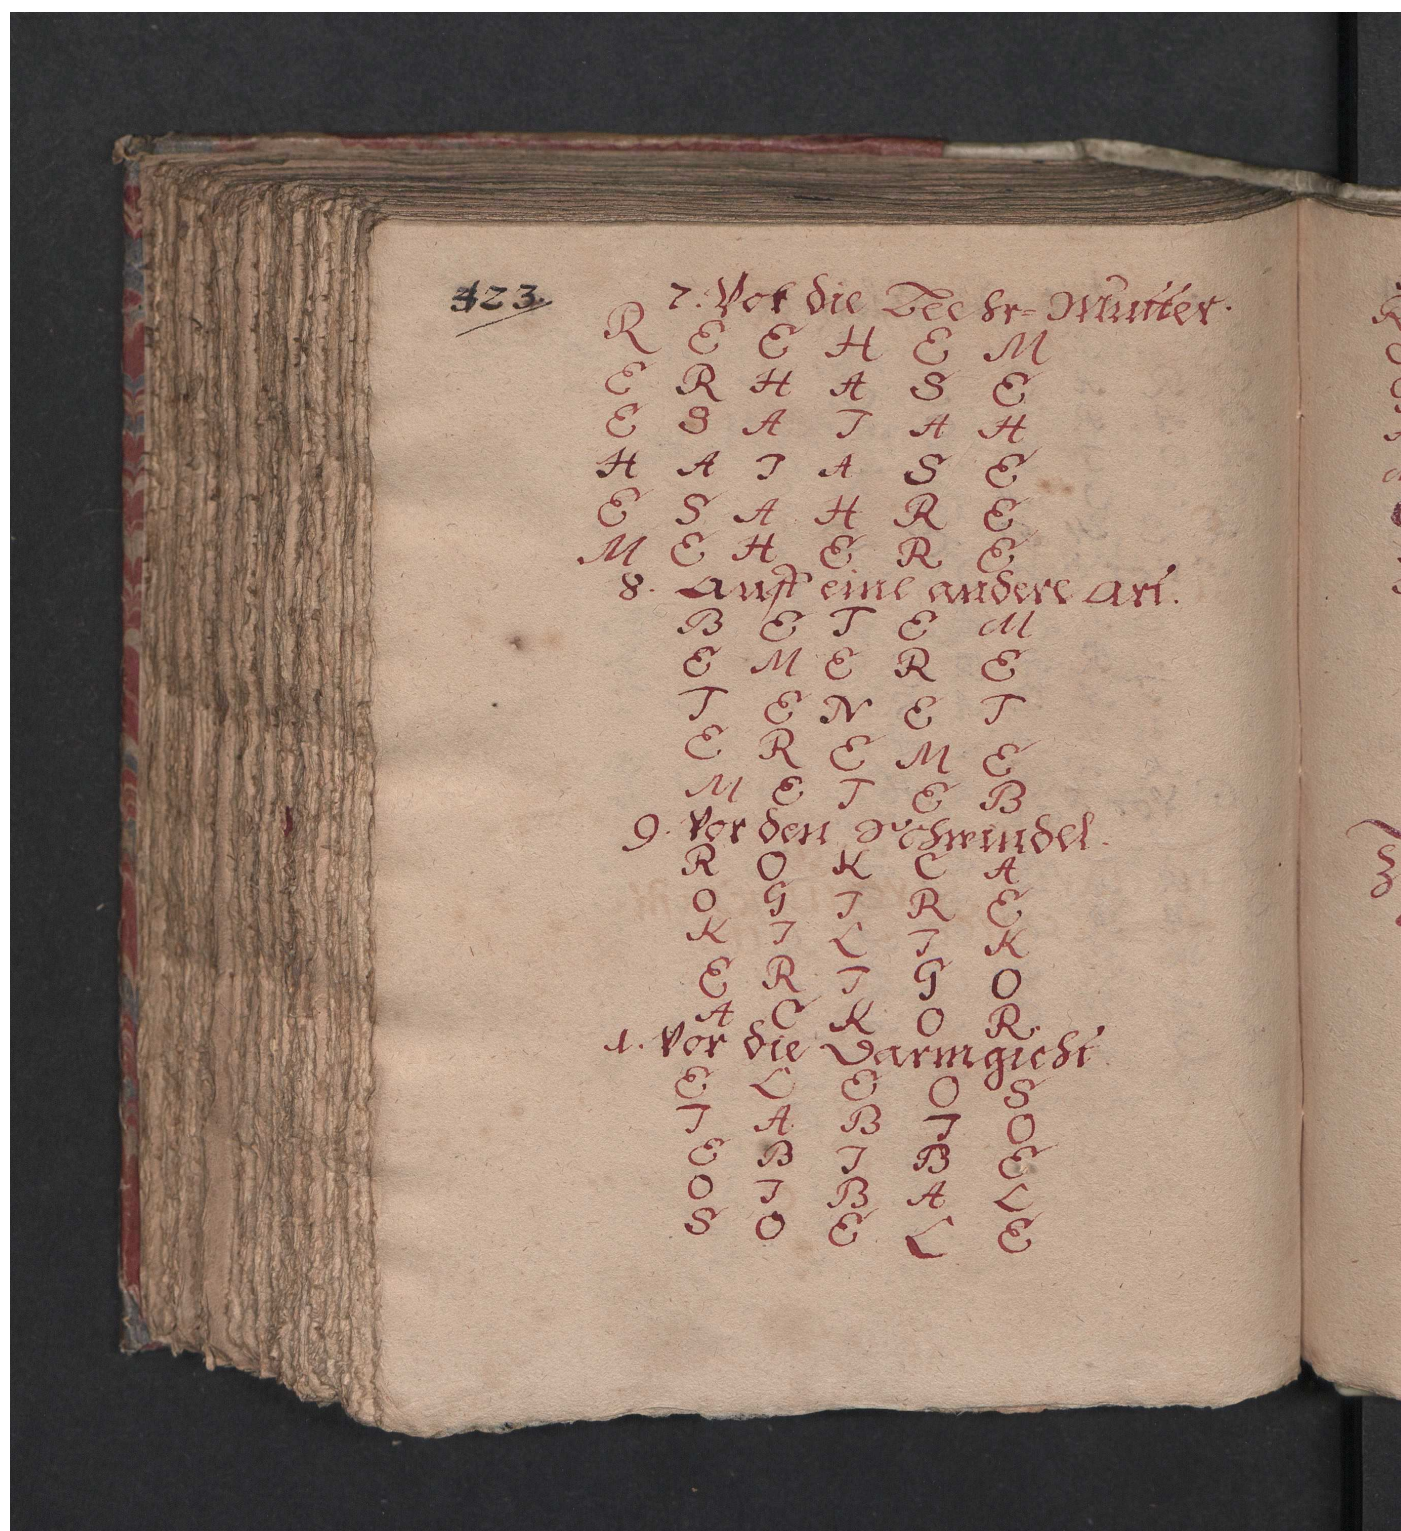 423.
7. Vor die Beehr=Mutter.
R E E H E M
E R H A S E
E S A T A H
H A T A S E
E S A H R E
M E H E R E
8. Auff eine andere art.
B E T E M
E M E R E
T E N E T
E R E M E
M E T E B
9. Vor den Schwindel.
R O K C A
O G I R E
K I L I K
E R I G O
A C K O R.
1. Vor die Darmgicht.
E L E O S
I A B I O
E B I B E
O I B A L
S O E L E